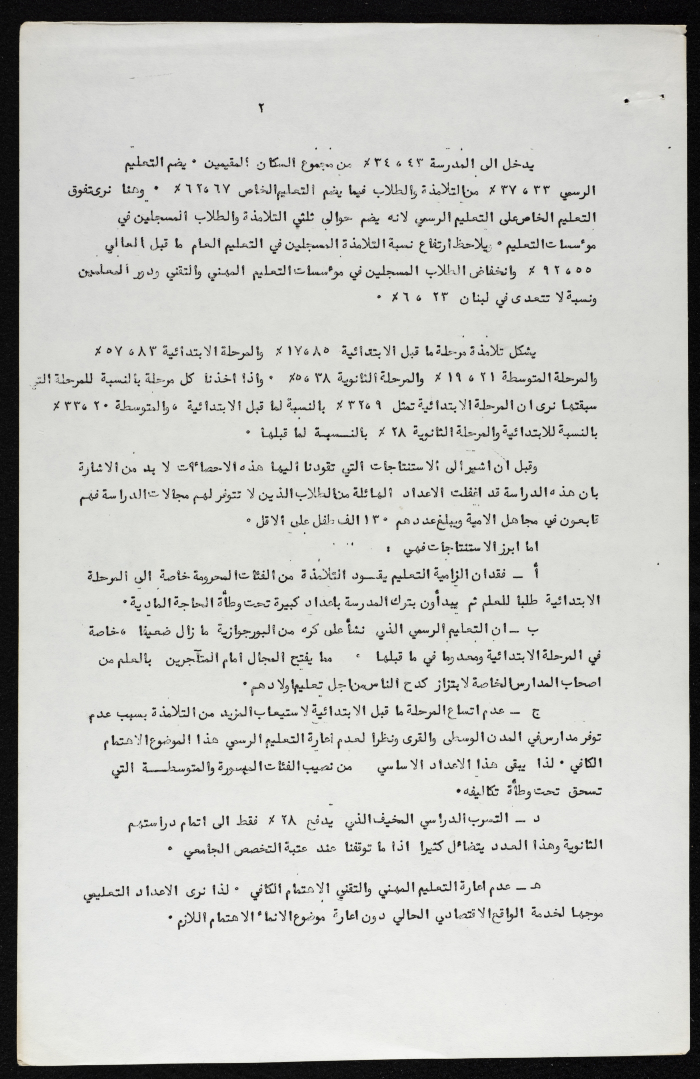 ٢
يدخل الى المدرسة ٤٣ ، ٣٤ ٪ من مجموع السكان المقيمين ٠ يضم التعليم
الرسمي ٣٣ ، ٣٧ ٪ من التلامذة والطلاب فيما يضم التعليم الخاص ٦٧ ، ٦٢ ٪ ٠ وهنا نرى تفوق
التعليم الخاص على التعليم الرسمي لانه يضم حوالى ثلثي التلامذة والطلاب المسجلين في
مؤسسات التعليم ٠ ويلاحظ ارتفاع نسبة التلامذة المسجلين في التعليم العام ما قبل العالي
٥٥ ، ٩٢ ٪ وانخفاض الطلاب المسجلين في مؤسسات التعليم المهني والتقني ودور المعلمين
ونسبة لا تتعدى في لبنان ٢٣ ، ٦ ٪ ٠
يشكل تلامذة مرحلة ما قبل الابتدائية ٨٥ ، ١٧ ٪ والمرحلة الابتدائية ٨٣ ، ٥٧ ٪
والمرحلة المتوسطة ٢١ ، ١٩ ٪ والمرحلة الثانوية ٣٨ ، ٥ ٪ ٠ واذا اخذنا كل مرحلة بالنسبة للمرحلة التي
سبقتها نرى ان المرحلة الابتدائية تمثل ٩ ، ٣٢ ٪ بالنسبة لما قبل الابتدائية ، والمتوسطة ٢٠ ، ٣٣ ٪
بالنسبة للابتدائية والمرحلة الثانوية ٢٨ ٪ بالنسبة لما قبلها ٠
وقبل ان اشير الى الاستنتاجات التي تقودنا اليها هذه الاحصائات لا بد من الاشارة
بان هذه الدراسة قد اغفلت الاعداد الهائلة من الطلاب الذين لا تتوفر لهم مجالات الدراسة فهم
تابعون في مجاهل الامية ويبلغ عددهم ١٣٠ الف طفل على الاقل ٠
اما ابرز الاستنتاجات فهي :
أ ــ فقدان الزامية التعليم يقود التلامذة من الفئات المحرومة خاصة الى المرحلة
الابتدائية طلبا للعلم ثم يبدأون بترك المدرسة باعداد كبيرة تحت وطأة الحاجة المادية ٠
ب ــ ان التعليم الرسمي الذي نشأ على كره من البورجوازية ما زال ضعيفا ، خاصة
في المرحلة الابتدائية ومعدوما في ما قبلها ٠ مما يفتح المجال أمام المتآجرين بالعلم من
اصحاب المدارس الخاصة لابتزاز كدح الناس من اجل تعليم اولادهم ٠
ج ــ عدم اتساع المرحلة ما قبل الابتدائية لاستيعاب المزيد من التلامذة بسبب عدم
توفر مدارس في المدن الوسطى والقرى ونظرا لعدم اعارة التعليم الرسمي هذا الموضوع الاهتمام
الكافي ٠ لذا يبقى هذا الاعداد الاساسي من نصيب الفئات الميسورة والمتوسطــة التي
تسحق تحت وطأة تكاليفه ٠
د ــ التسرب الدراسي المخيف الذي يدفع ٢٨ ٪ فقط الى اتمام دراستهم
الثانوية وهذا العدد يتضائل كثيرا اذا ما توقفنا عند عتبة التخصص الجامعي ٠
هـ ــ عدم اعارة التعليم المهني والتقني الاهتمام الكافي ٠ لذا نرى الاعداد التعليمي
موجها لخدمة الواقع الاقتصادي الحالي دون اعارة موضوع الانماء الاهتمام اللازم ٠